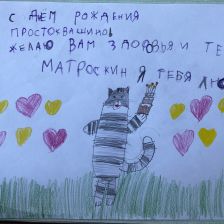 С ДНЁМ РОЖДЕНИЯ
ПРОСТОКВАШИНО!
ЖЕЛАЮ ВАМ ЗДОРОВЬЯ И
МАТРОСКИН Я ТЕБЯ